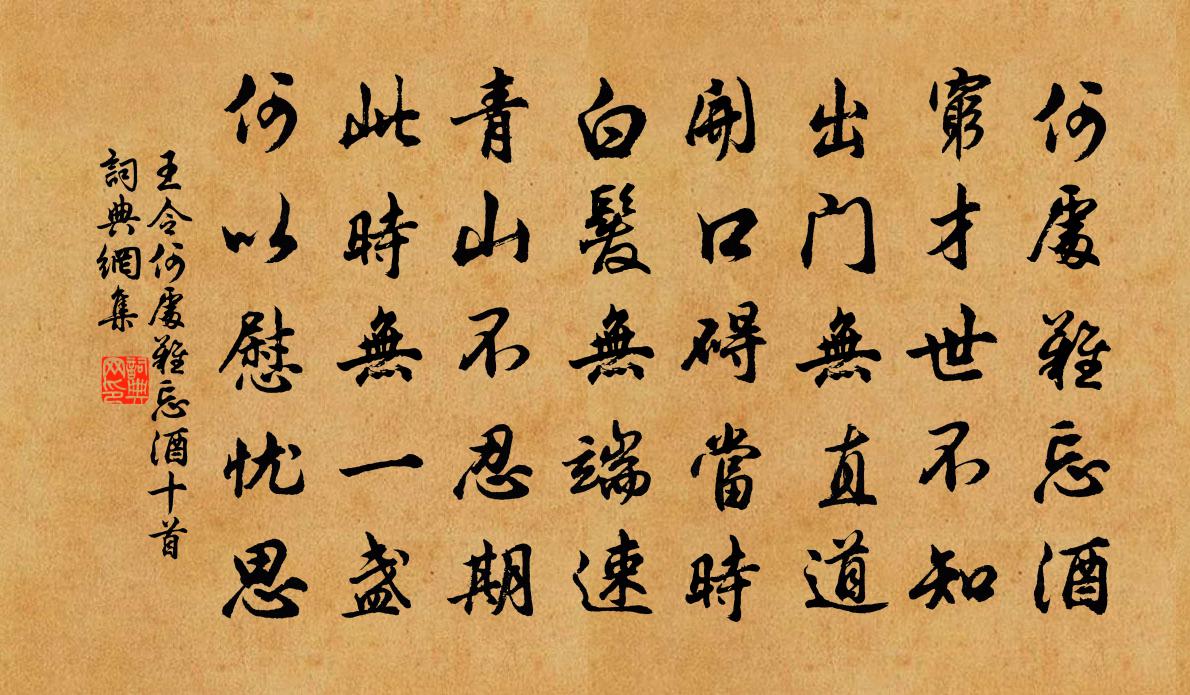 何處難忘酒
窮才世不知
出門無直道
開口碍當時
白髮無端速
青山不忍期
此時無一盞
何以慰忧思
王令何處難忘酒十首
詞典網集
詞典
网印